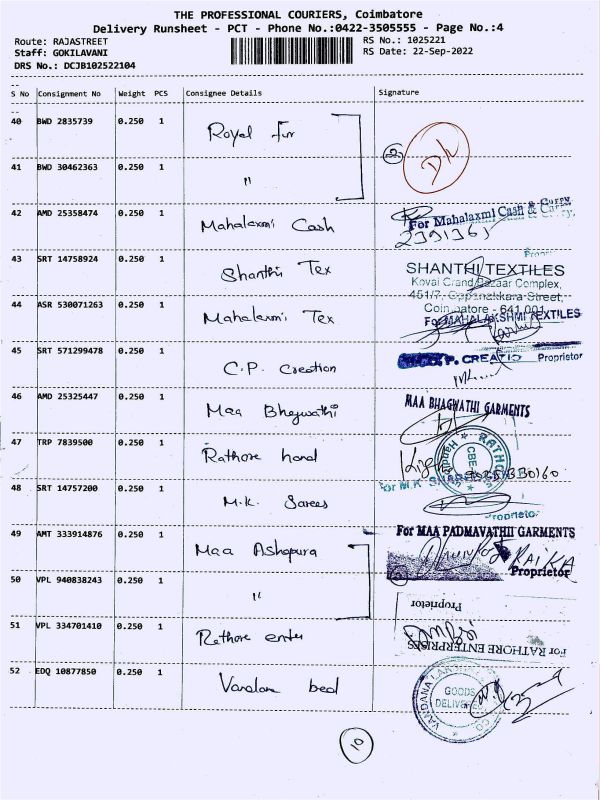 THE PROFESSIONAL COURIERS, Coimbatore
Delivery Runsheet - PCT - Phone No.:0422-3505555 - Page No.:4
Route: RAJASTREET RS No.: 1025221
Staff: GOKILAVANI RS Date: 22-Sep-2022
DRS No.: DCJB102522104
S No Consignment No Weight PCS Consignee Details Signature
40 BWD 2835739 0.250 1 Royal Fur
2
41 BWD 30462363 0.250 1 "
42 AMD 25358474 0.250 1 Mahalaxmi Cash For Mahalaxmi Cash & Carry,
43 SRT 14758924 0.250 1 Shanthi Tex SHANTHI TEXTILES
Kovai Grand Bazaar Complex,
451/7, Oppanakkara Street,
Coimbatore - 641 001
44 ASR 530071263 0.250 1 Mahalaxmi Tex For MAHALAKSHMI TEXTILES
45 SRT 571299478 0.250 1 C.P. Creation P. CREATIO Proprietor
46 AMD 25325447 0.250 1 Maa Bhagwathi MAA BHAGWATHI GARMENTS
47 TRP 7839500 0.250 1 Rathore hand
48 SRT 14757200 0.250 1 M.K. Sarees For M.K
Proprietor
49 AMT 333914876 0.250 1 Maa Ashapura For MAA PADMAVATHII GARMENTS
RAIKA
Proprietor
50 VPL 940838243 0.250 1 "
Proprietor
51 VPL 334701410 0.250 1 Rathore enter For RATHORE ENTERPRISES
52 EDQ 10877850 0.250 1 Vandana bed GOODS
DELIVERED
10